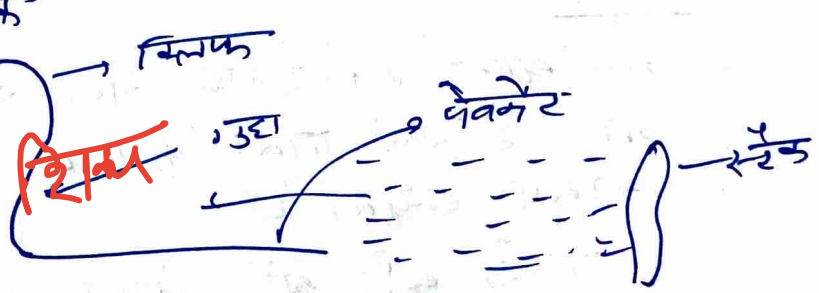 क्लिफ
गुहा
पेवमेंट
स्टैक